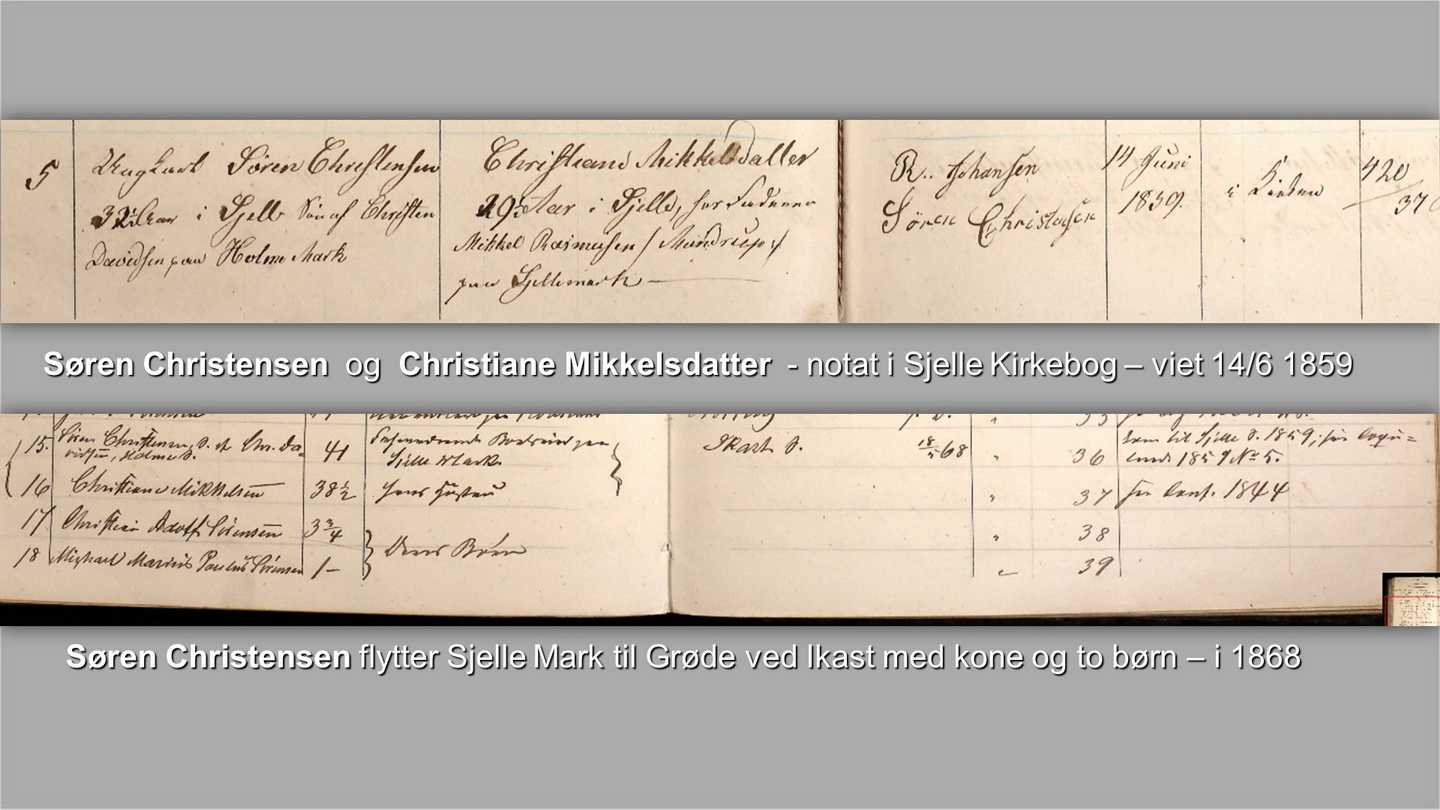 5 Ungkarl Søren Christensen Christiane Mikkelsdatter R.. Johansen 14 Juni i Kirken 420
32½ Aar i Sjelle Søn af Christen 29½ Aar i Sjelle, hos Faderen Søren Christensen 1859. 37
Davidsen paa Holme Mark Mikkel Rasmusen / Mandrup /
paa Sjellemark
Søren Christensen og Christiane Mikkelsdatter - notat i Sjelle Kirkebog – viet 14/6 1859
15. Søren Christensen, S. af Chr. Da- 41 Sjelle Mark 18/5 68 " 36 kom til Sjelle S. 1859; see Copu-
vidsen, Holme S. 1859 No 5.
16 Christiane Mikkelsen 38½ hans Hustru " 37 see Conf. 1844
17 Christian Adolf Sørensen 3¾ " 38
Deres Børn
18 Michael Marius Paulus Sørensen 1- " 39
Søren Christensen flytter Sjelle Mark til Grøde ved Ikast med kone og to børn – i 1868